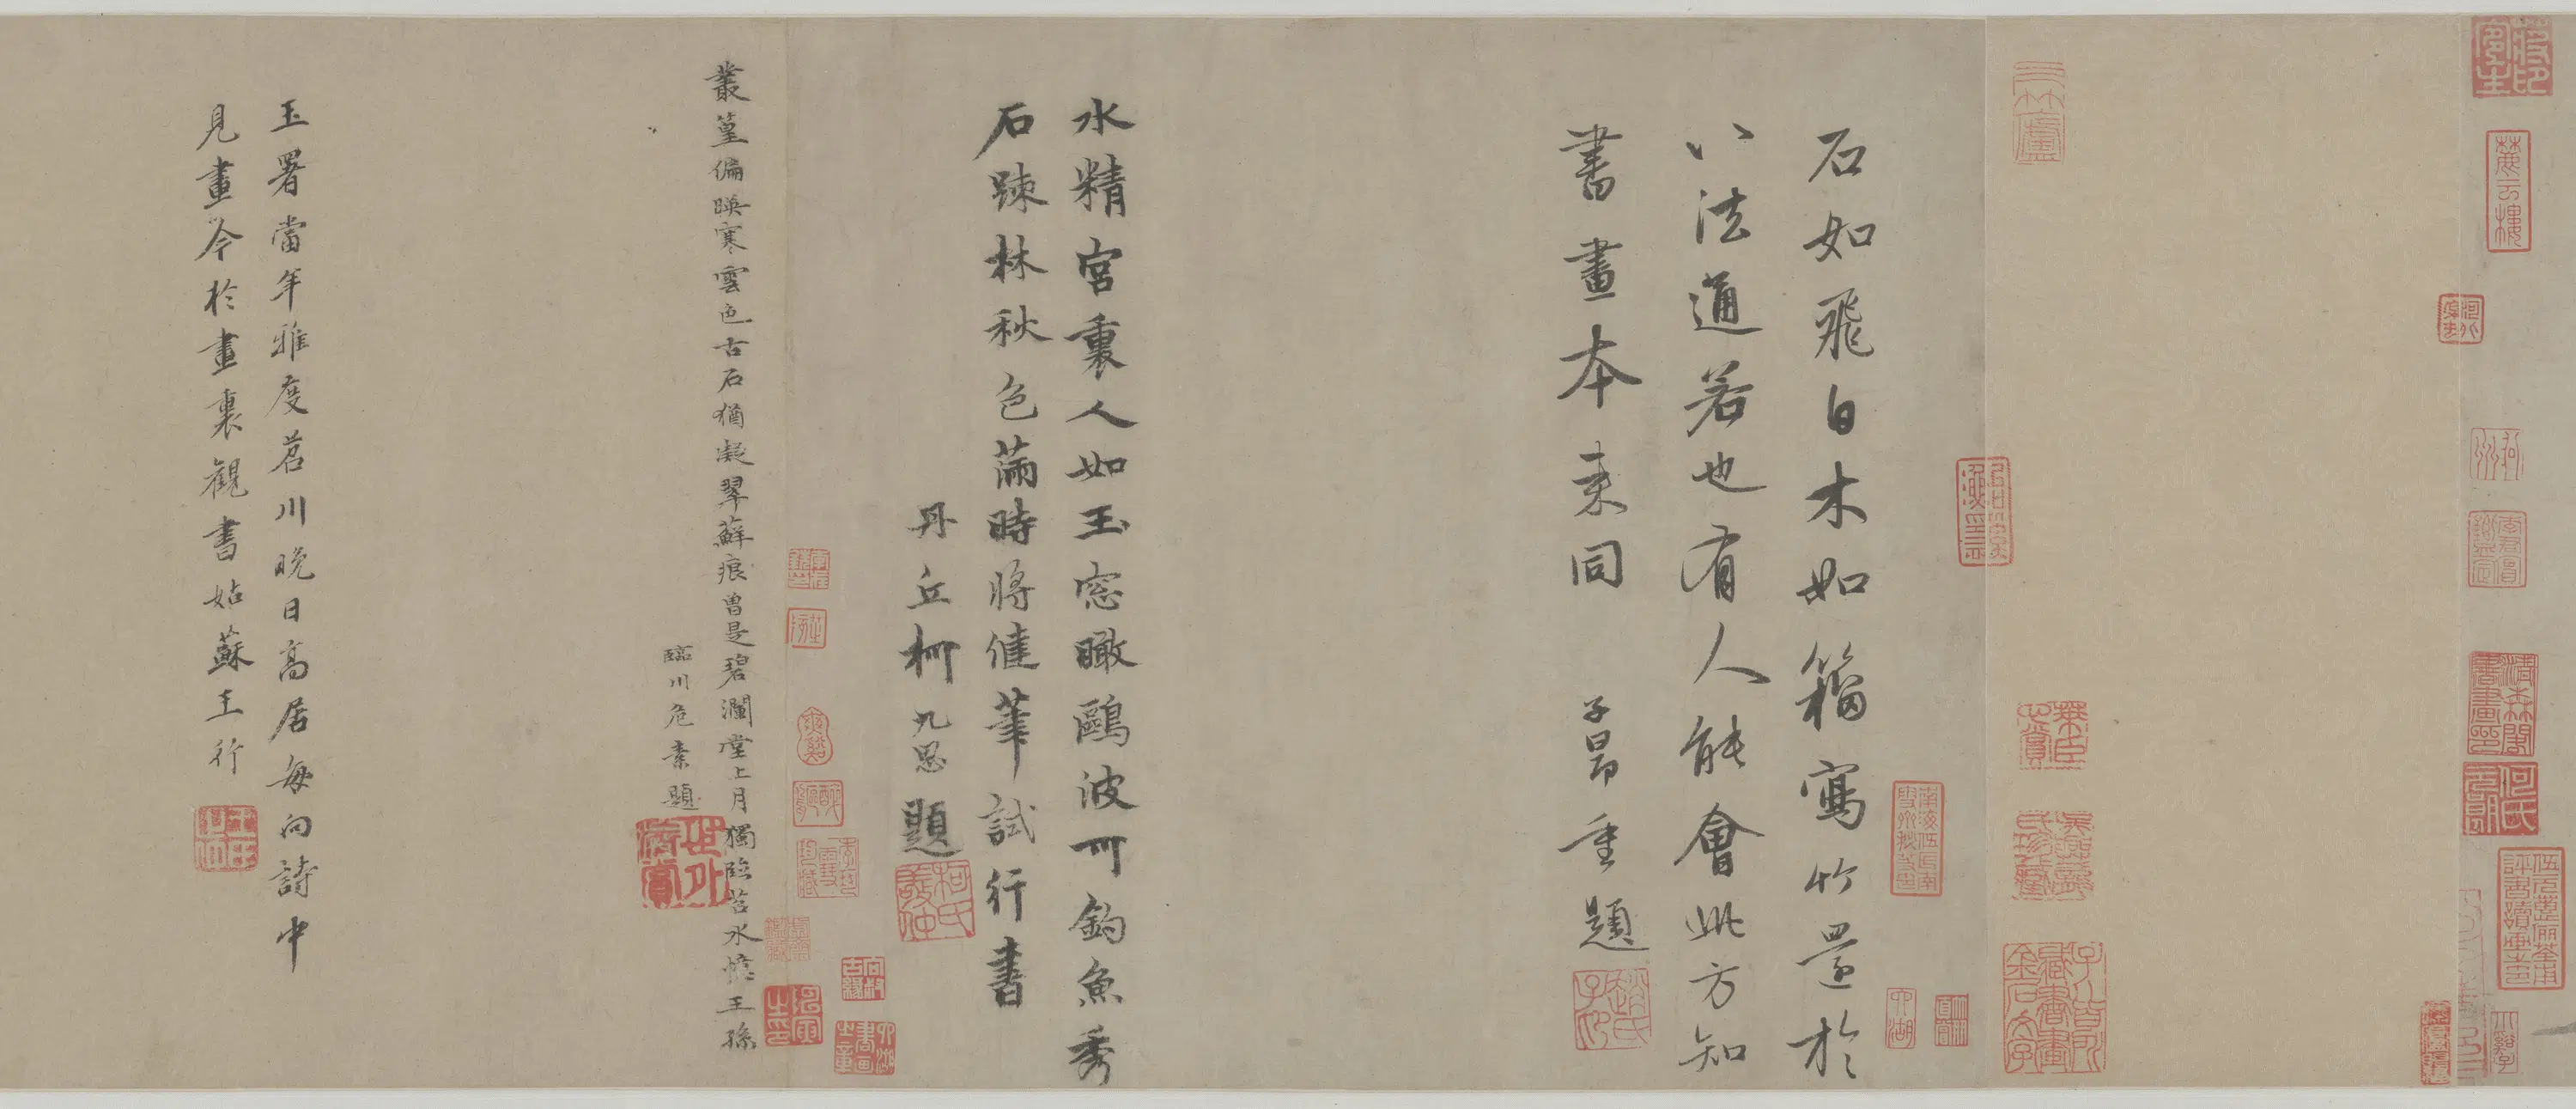 麓雲樓
清森閣書畫印
何氏元朗
石如飛白木如籀寫竹還於
八法通若也有人能會此方知
書畫本来同　子昂重題
趙氏子昂
水精宮裏人如玉窓瞰鷗波可釣魚秀
石踈林秋色滿時將健筆試行書
丹丘柯九思題
柯氏敬仲
叢篁偏暎寒雲色古石猶凝翠蘚痕曽是碧瀾堂上月獨臨苕水憶王孫
臨川危素題
玉署當年雅度苕川晚日高居每向詩中
見畫今於畫裏觀書姑蘇王行